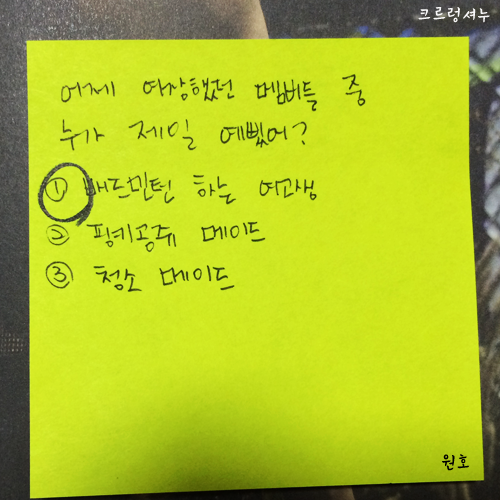 크르렁셔누
어제 여장했던 멤버들 중
누가 제일 예뻤어?
① 배드민턴 하는 여고생
② 핑키공쥬 메이드
③ 청소 메이드
원호